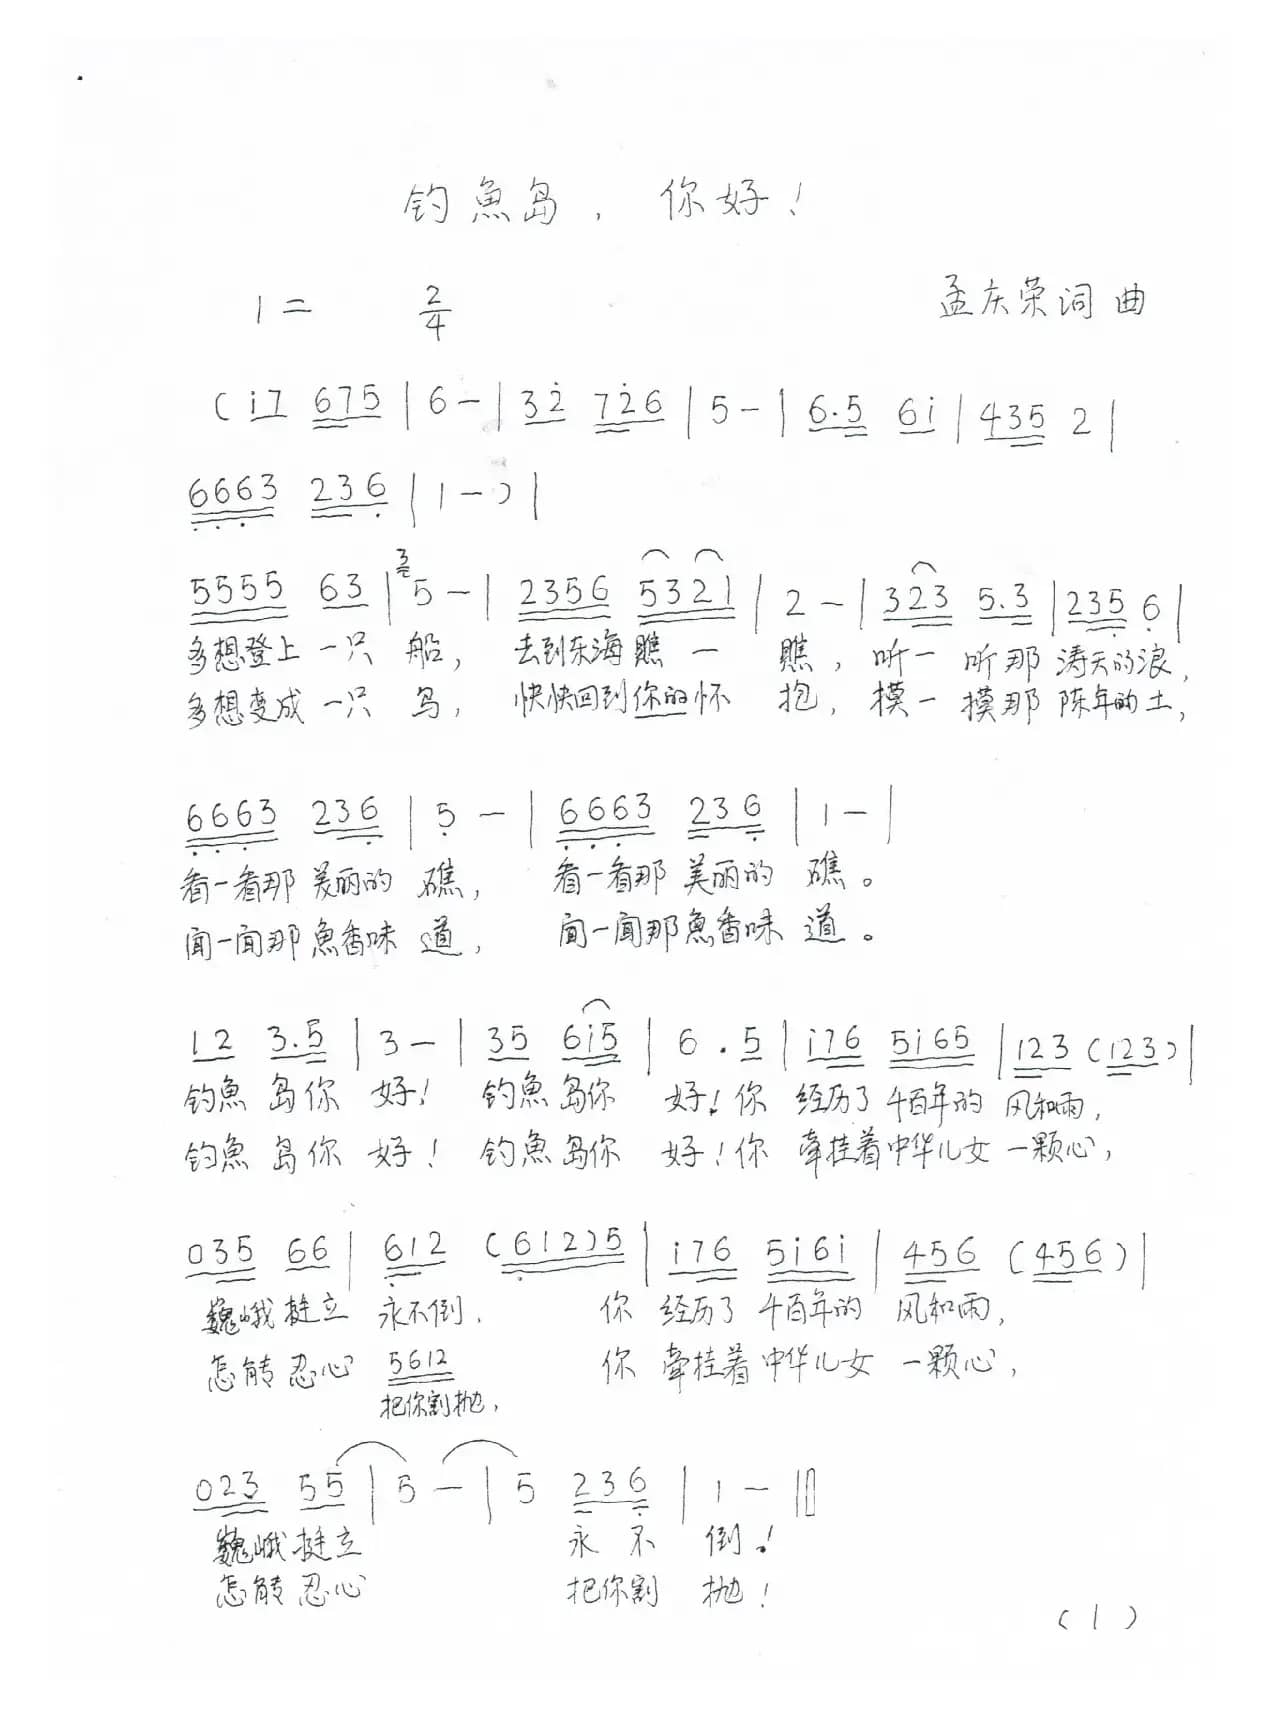 钓魚岛，你好！
1= 2/4 孟庆荣词曲
(i7 675|6-|32̇ 72̇6|5-|6.5 6i|435 2|
6̣6̣6̣3 236̣|1-)|
5555 63|³5-|2356 5321|2-|323 5.3|235̣ 6̣|
多想登上一只船，去到东海瞧一瞧，听一听那涛天的浪，
多想变成一只鸟，快快回到你的怀抱，摸一摸那陈年的土，
6̣6̣6̣3 236̣|5̣-|6̣6̣6̣3 236̣|1-|
看一看那美丽的礁，看一看那美丽的礁。
闻一闻那魚香味道，闻一闻那魚香味道。
12 3.5|3-|35 6i5|6.5|i76 5i65|123 (123)|
钓魚岛你好！钓魚岛你好！你经历了千百年的风和雨，
钓魚岛你好！钓魚岛你好！你牵挂着中华儿女一颗心，
035 66|6̣12 (6̣12)5|i76 5i6i|456 (456)|
巍峨挺立永不倒．你经历了千百年的风和雨，
怎能忍心 5612 你牵挂着中华儿女一颗心，
把你割抛，
023 55|5-|5 236̣|1-||
巍峨挺立永不倒！
怎能忍心把你割抛！
(1)